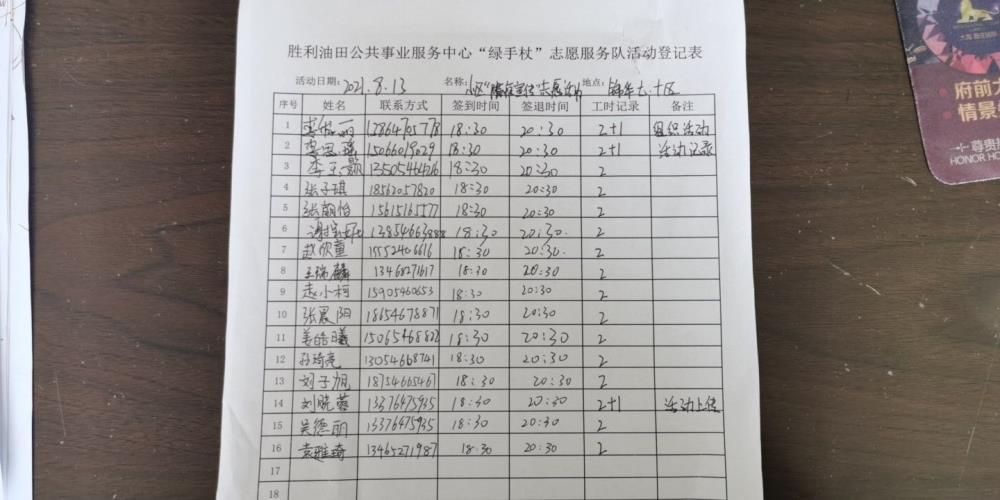 胜利油田公共事业服务中心“绿手杖”志愿服务队活动登记表
活动日期: 2021.8.13 名称: 志愿 地点:
序号 姓名 联系方式 签到时间 签退时间 工时记录 备注
1 李 丽 18:30 20:30 2+1 组织活动
2 李思瑶 15066019029 18:30 20:30 2+1 活动记录
3 李玉 18:30 20:30 2
4 张子琪 18562057820 18:30 20:30 2
5 张朝怡 15615165577 18:30 20:30 2
6 18:30 20:30. 2
7 赵欣童 15552406616 18:30 20:30. 2
8 王瑞麟 13468271617 18:30 20:30 2
9 赵小柯 15905460653 18:30 20:30 2
10 张晨阳 18654678871 18:30 20:30 2
11 姜皓曦 18:30 20:30 2
12 孙琦亮 13054668741 18:30 20:30 2
13 刘子旭 18754665467 18:30 20:30 2
14 刘晓蓉 13376475935 18:30 20:30 2+1 活动上传
15 吴德丽 13376475935 18:30 20:30 2
16 袁雅琦 13465271987 18:30 20:30 2
17
18
府前
情景
尊贵
HONOR